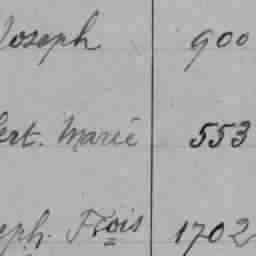 Joseph 900
ert. Marie 553
eph. Frois 1702